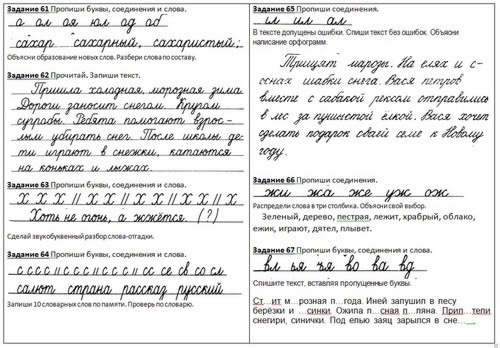 Задание 61 Пропиши буквы, соединения и слова.
о ол оя юл од об
сахар сахарный, сахаристый;
Объясни образование новых слов. Разбери слова по составу.
Задание 62 Прочитай. Запиши текст.
Пришла холодная, морозная зима.
Дороги заносит снегом. Кругом
сугробы. Ребята помогают взрос-
лым убирать снег. После школы де-
ти играют в снежки, катаются
на коньках и лыжах.
Задание 63 Пропиши буквы, соединения и слова.
Х Х Х // Х Х // Х Х // Х Х // Х
Хоть не гонь, а жжётся. (?)
Сделай звукобуквенный разбор слова-отгадки.
Задание 64 Пропиши буквы, соединения и слова.
с с с с // с с // с с // сс се св со сл
салют страна рассказ русский
Запиши 10 словарных слов по памяти. Проверь по словарю.
Задание 65 Пропиши соединения.
ил ал
В тексте допущены ошибки. Спиши текст без ошибок. Объясни
написание орфограмм.
Трищят марозы. На елях и с-
оснах шабки снега. Вася петров
вместе с сабакой рексом отправились
в лес за пушистой ёлкой. Вася хочет
сделать подарок сваей семе к Новому
году.
Задание 66 Пропиши соединения.
жи жа же уж ож
Распредели слова в три столбика. Объясни свой выбор.
Зеленый, дерево, пестрая, лежит, храбрый, облако,
ежик, играют, дятел, плывет.
Задание 67 Пропиши буквы, соединения и слова.
вл ья чя во ва вд
Спишите текст, вставляя пропущенные буквы.
Ст…ит м…розная п…года. Иней запушил в лесу
берёзки и …синки. Ожила л…сная п…ляна. Прил…тепи
снегири, синички. Под елью заяц зарылся в сне…